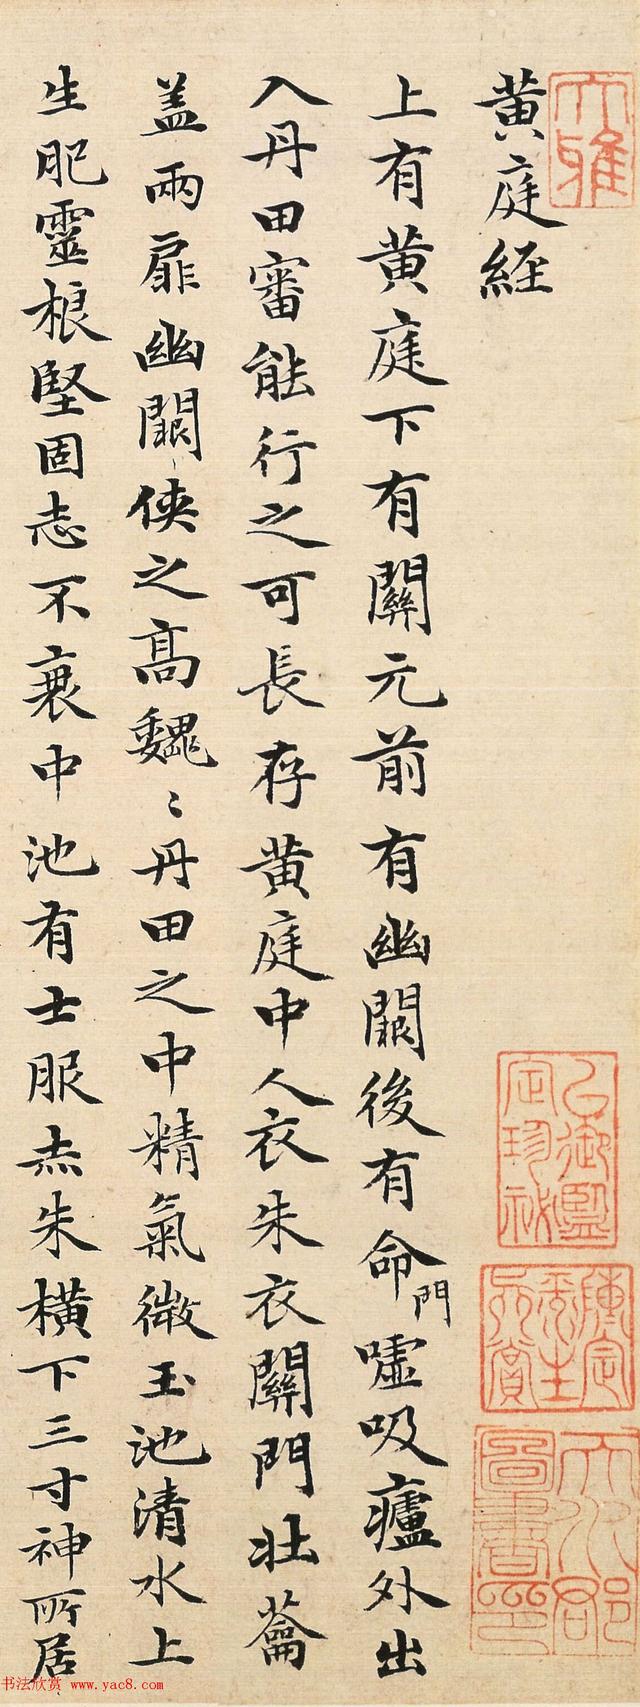 大雅
黄庭經
上有黄庭下有關元前有幽闕後有命門嘘吸廬外出
入丹田審能行之可長存黄庭中人衣朱衣關門壮籥
盖兩扉幽闕侠之高魏〻丹田之中精氣微玉池清水上
生肥靈根堅固志不衰中池有士服赤朱横下三寸神所居
天水郡圖書印
书法欣赏 www.yac8.com